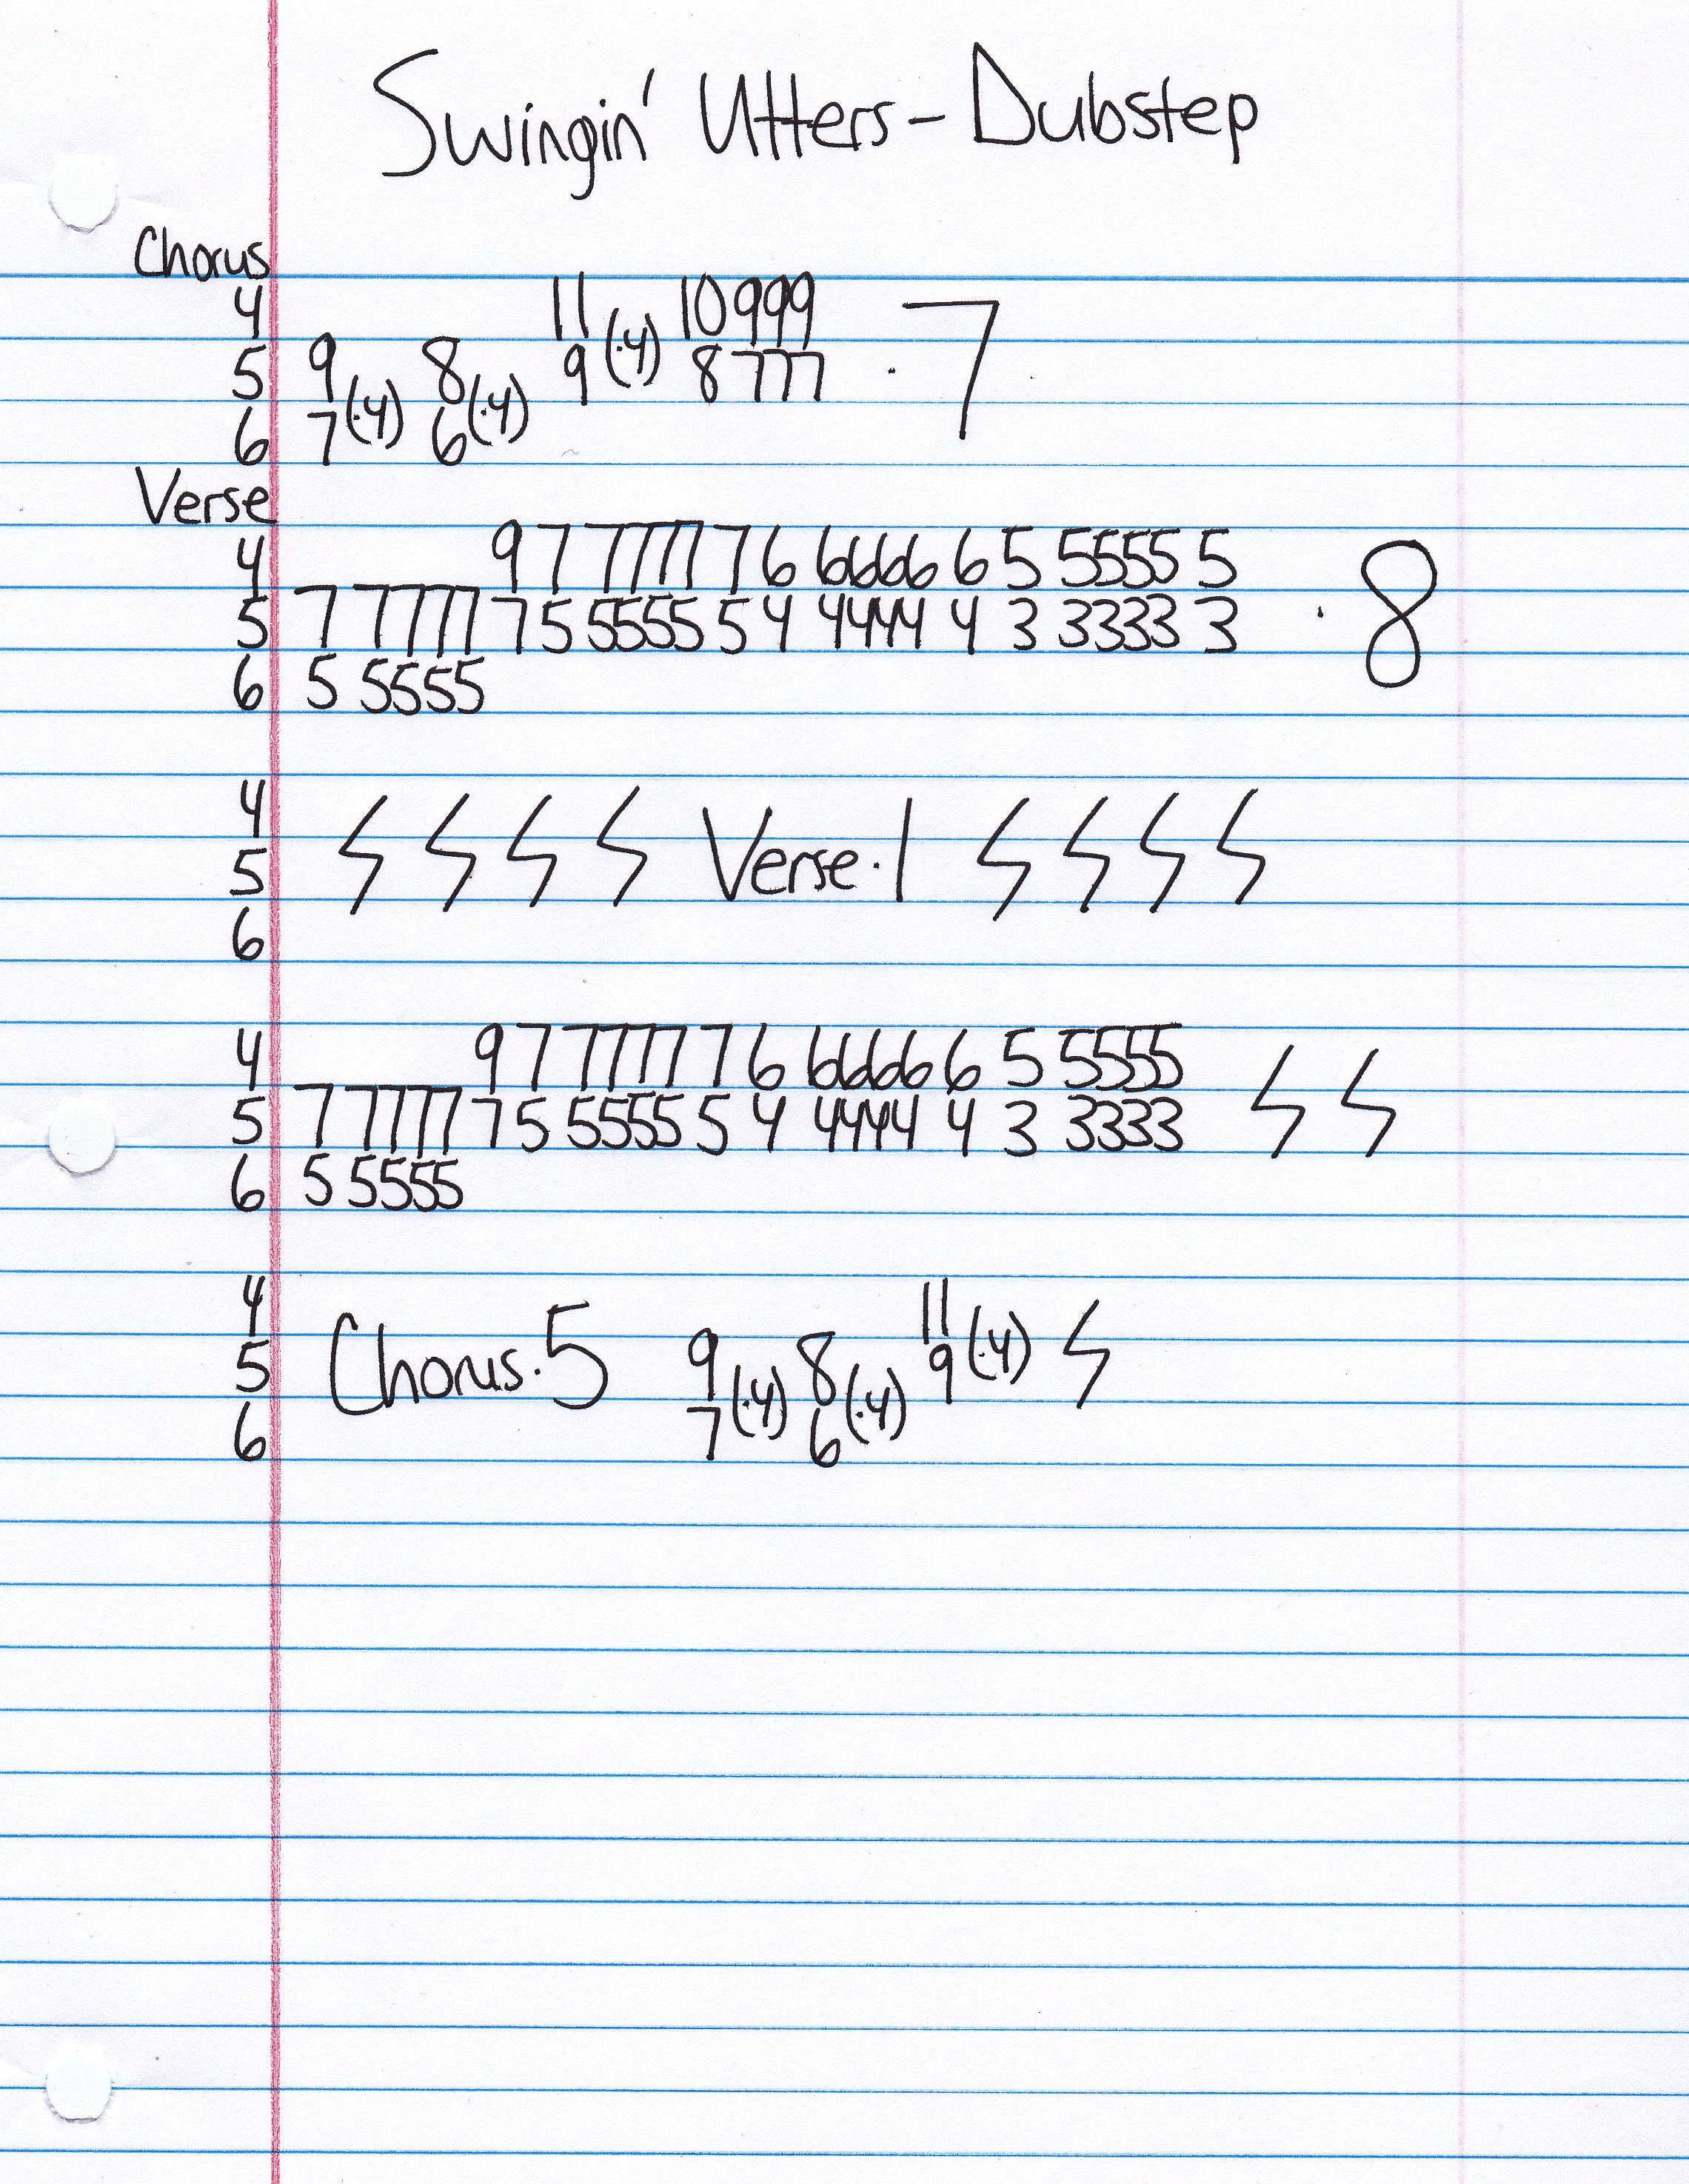 Swingin' Utters - Dubstep
Chorus
4 11 10 9 9 9
5 9 8 9 (·4) 8 7 7 7 · 7
6 7 (·4) 6 (·4)
Verse
4 9 7 7 7 7 7 7 6 6 6 6 6 6 5 5 5 5 5 5
5 7 7 7 7 7 7 5 5 5 5 5 5 4 4 4 4 4 4 3 3 3 3 3 3 · 8
6 5 5 5 5 5
4
5 Verse · 1
6
4 9 7 7 7 7 7 7 6 6 6 6 6 6 5 5 5 5 5
5 7 7 7 7 7 7 5 5 5 5 5 5 4 4 4 4 4 4 3 3 3 3 3
6 5 5 5 5 5
4 11
5 Chorus · 5 9 8 9 (·4)
6 7 (·4) 6 (·4)